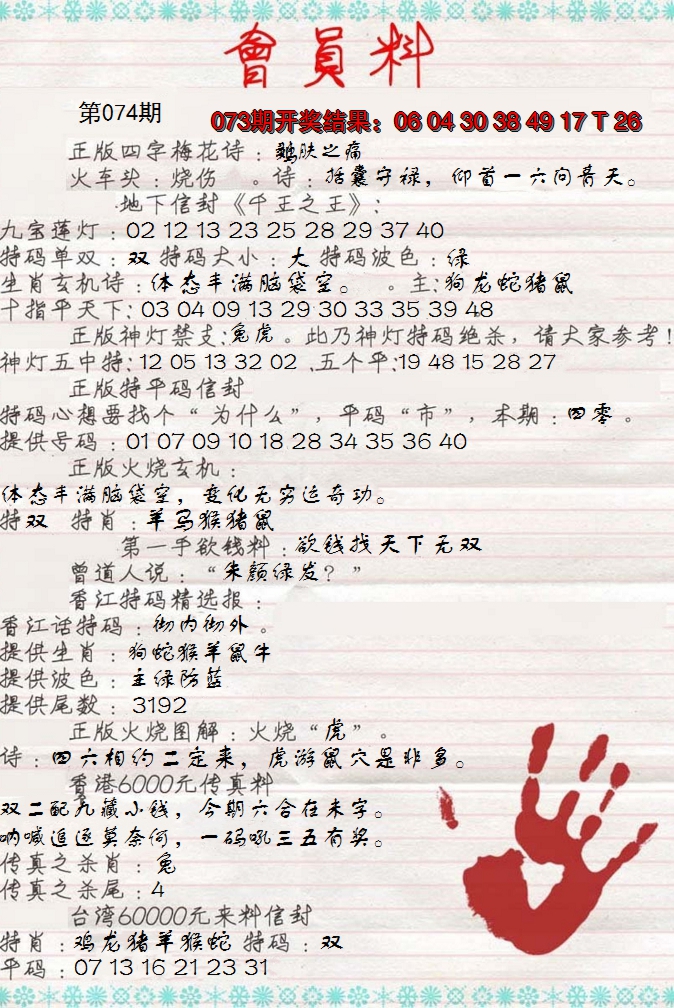 會員料
第074期
073期开奖结果：06 04 30 38 49 17 T 26
正版四字梅花诗：鹅肤之痛
火车头：烧伤 。诗：括囊守禄，仰首一六问青天。
地下信封《千王之王》：
九宝莲灯：02 12 13 23 25 28 29 37 40
特码单双：双 特码大小：大 特码波色：绿
生肖玄机诗：体态丰满脑袋空。 。主：狗龙蛇猪鼠
十指平天下：03 04 09 13 29 30 33 35 39 48
正版神灯禁支：兔虎。此乃神灯特码绝杀，请大家参考！
神灯五中特：12 05 13 32 02 、五个平：19 48 15 28 27
正版特平码信封
特码心想要找个“为什么”，平码“市”，本期：四零。
提供号码：01 07 09 10 18 28 34 35 36 40
正版火烧玄机：
体态丰满脑袋空，变化无穷运奇功。
特双 特肖：羊马猴猪鼠
第一手欲钱料：欲钱找天下无双
曾道人说：“朱颜绿发？”
香江特码精选报：
香江话特码：彻内彻外。
提供生肖：狗蛇猴羊鼠牛
提供波色：主绿防蓝
提供尾数：3192
正版火烧图解：火烧“虎”。
诗：四六相约二定来，虎游鼠穴是非多。
香港6000元传真料
双二配九藏小钱，今期六合在未字。
呐喊追逐莫奈何，一码吼三五有奖。
传真之杀肖：兔
传真之杀尾：4
台湾60000元来料信封
特肖：鸡龙猪羊猴蛇 特码：双
平码：07 13 16 21 23 31